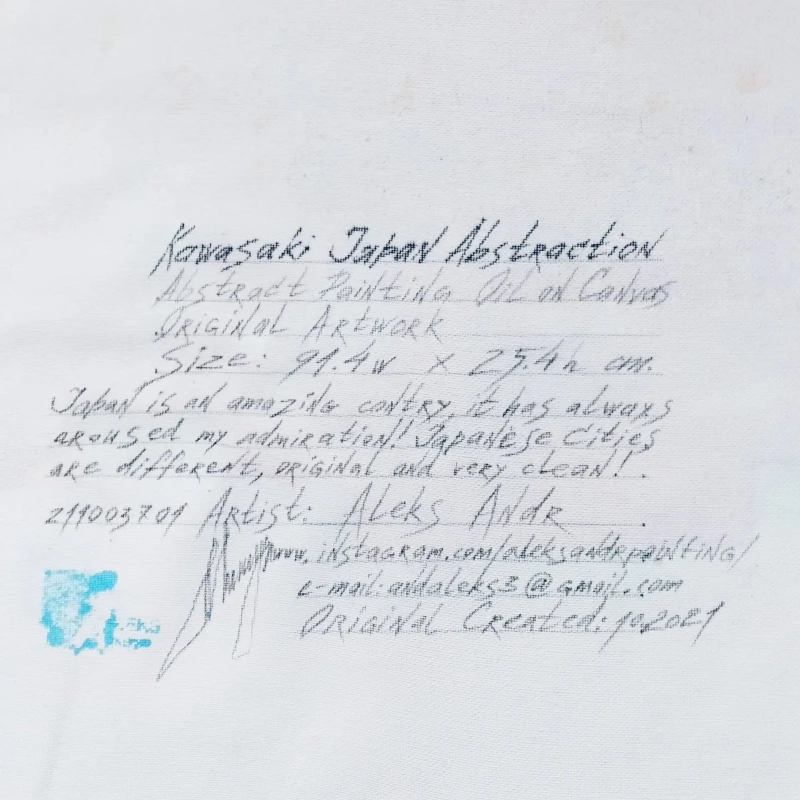 Kawasaki Japan Abstraction
Abstract Painting Oil on Canvas
Original Artwork
Size: 91.4w x 25.4h cm.
Japan is an amazing contry, it has always
aroused my admiration! Japanese Cities
are different, original and very clean!
211003701 Artist: Aleks Andr
www.instagram.com/aleksandrpainting/
e-mail:andaleks3@gmail.com
Original Created: 10.2021